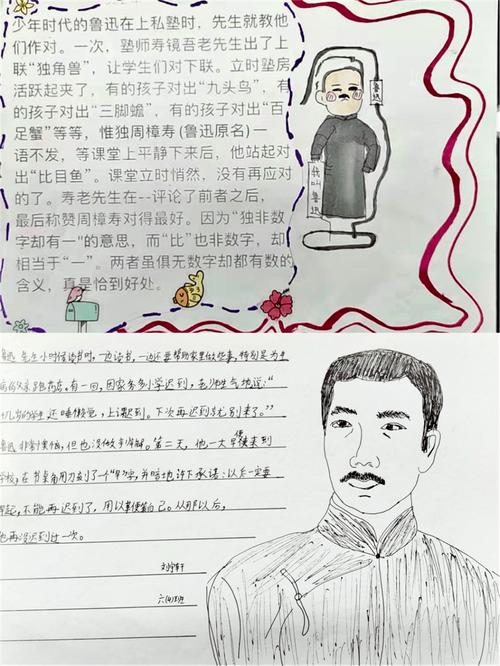 少年时代的鲁迅在上私塾时，先生就教他
们作对。一次，塾师寿镜吾老先生出了上
联“独角兽”，让学生们对下联。立时塾房
活跃起来了，有的孩子对出“九头鸟”，有
的孩子对出“三脚蟾”，有的孩子对出“百
足蟹”等等，惟独周樟寿(鲁迅原名)一
语不发，等课堂上平静下来后，他站起对
出“比目鱼”。课堂立时悄然，没有再应对
的了。寿老先生在--评论了前者之后，
最后称赞周樟寿对得最好。因为“独非数
字却有一"的意思，而“比”也非数字，却
相当于“一”。两者虽俱无数字却都有数的
含义，真是恰到好处。
鲁迅
我叫鲁迅
鲁迅先生小时候读书时，一边读书，一边还要帮助家里做些事，特别是为生
病的父亲跑药店，有一回，因家务多小学迟到，老师生气地说：“
十几岁的学生还睡懒觉，上课迟到。下次再迟到就别来了。”
鲁迅非常懊恼，但也没做辩解。第二天，他一大早便来到
学校，在书桌角用刀刻了一个“早”字，并暗地许下承诺：以后一定要
早起，不能再迟到了，用以事便自己。从那以后，
他再没迟到过一次。
六(4)班